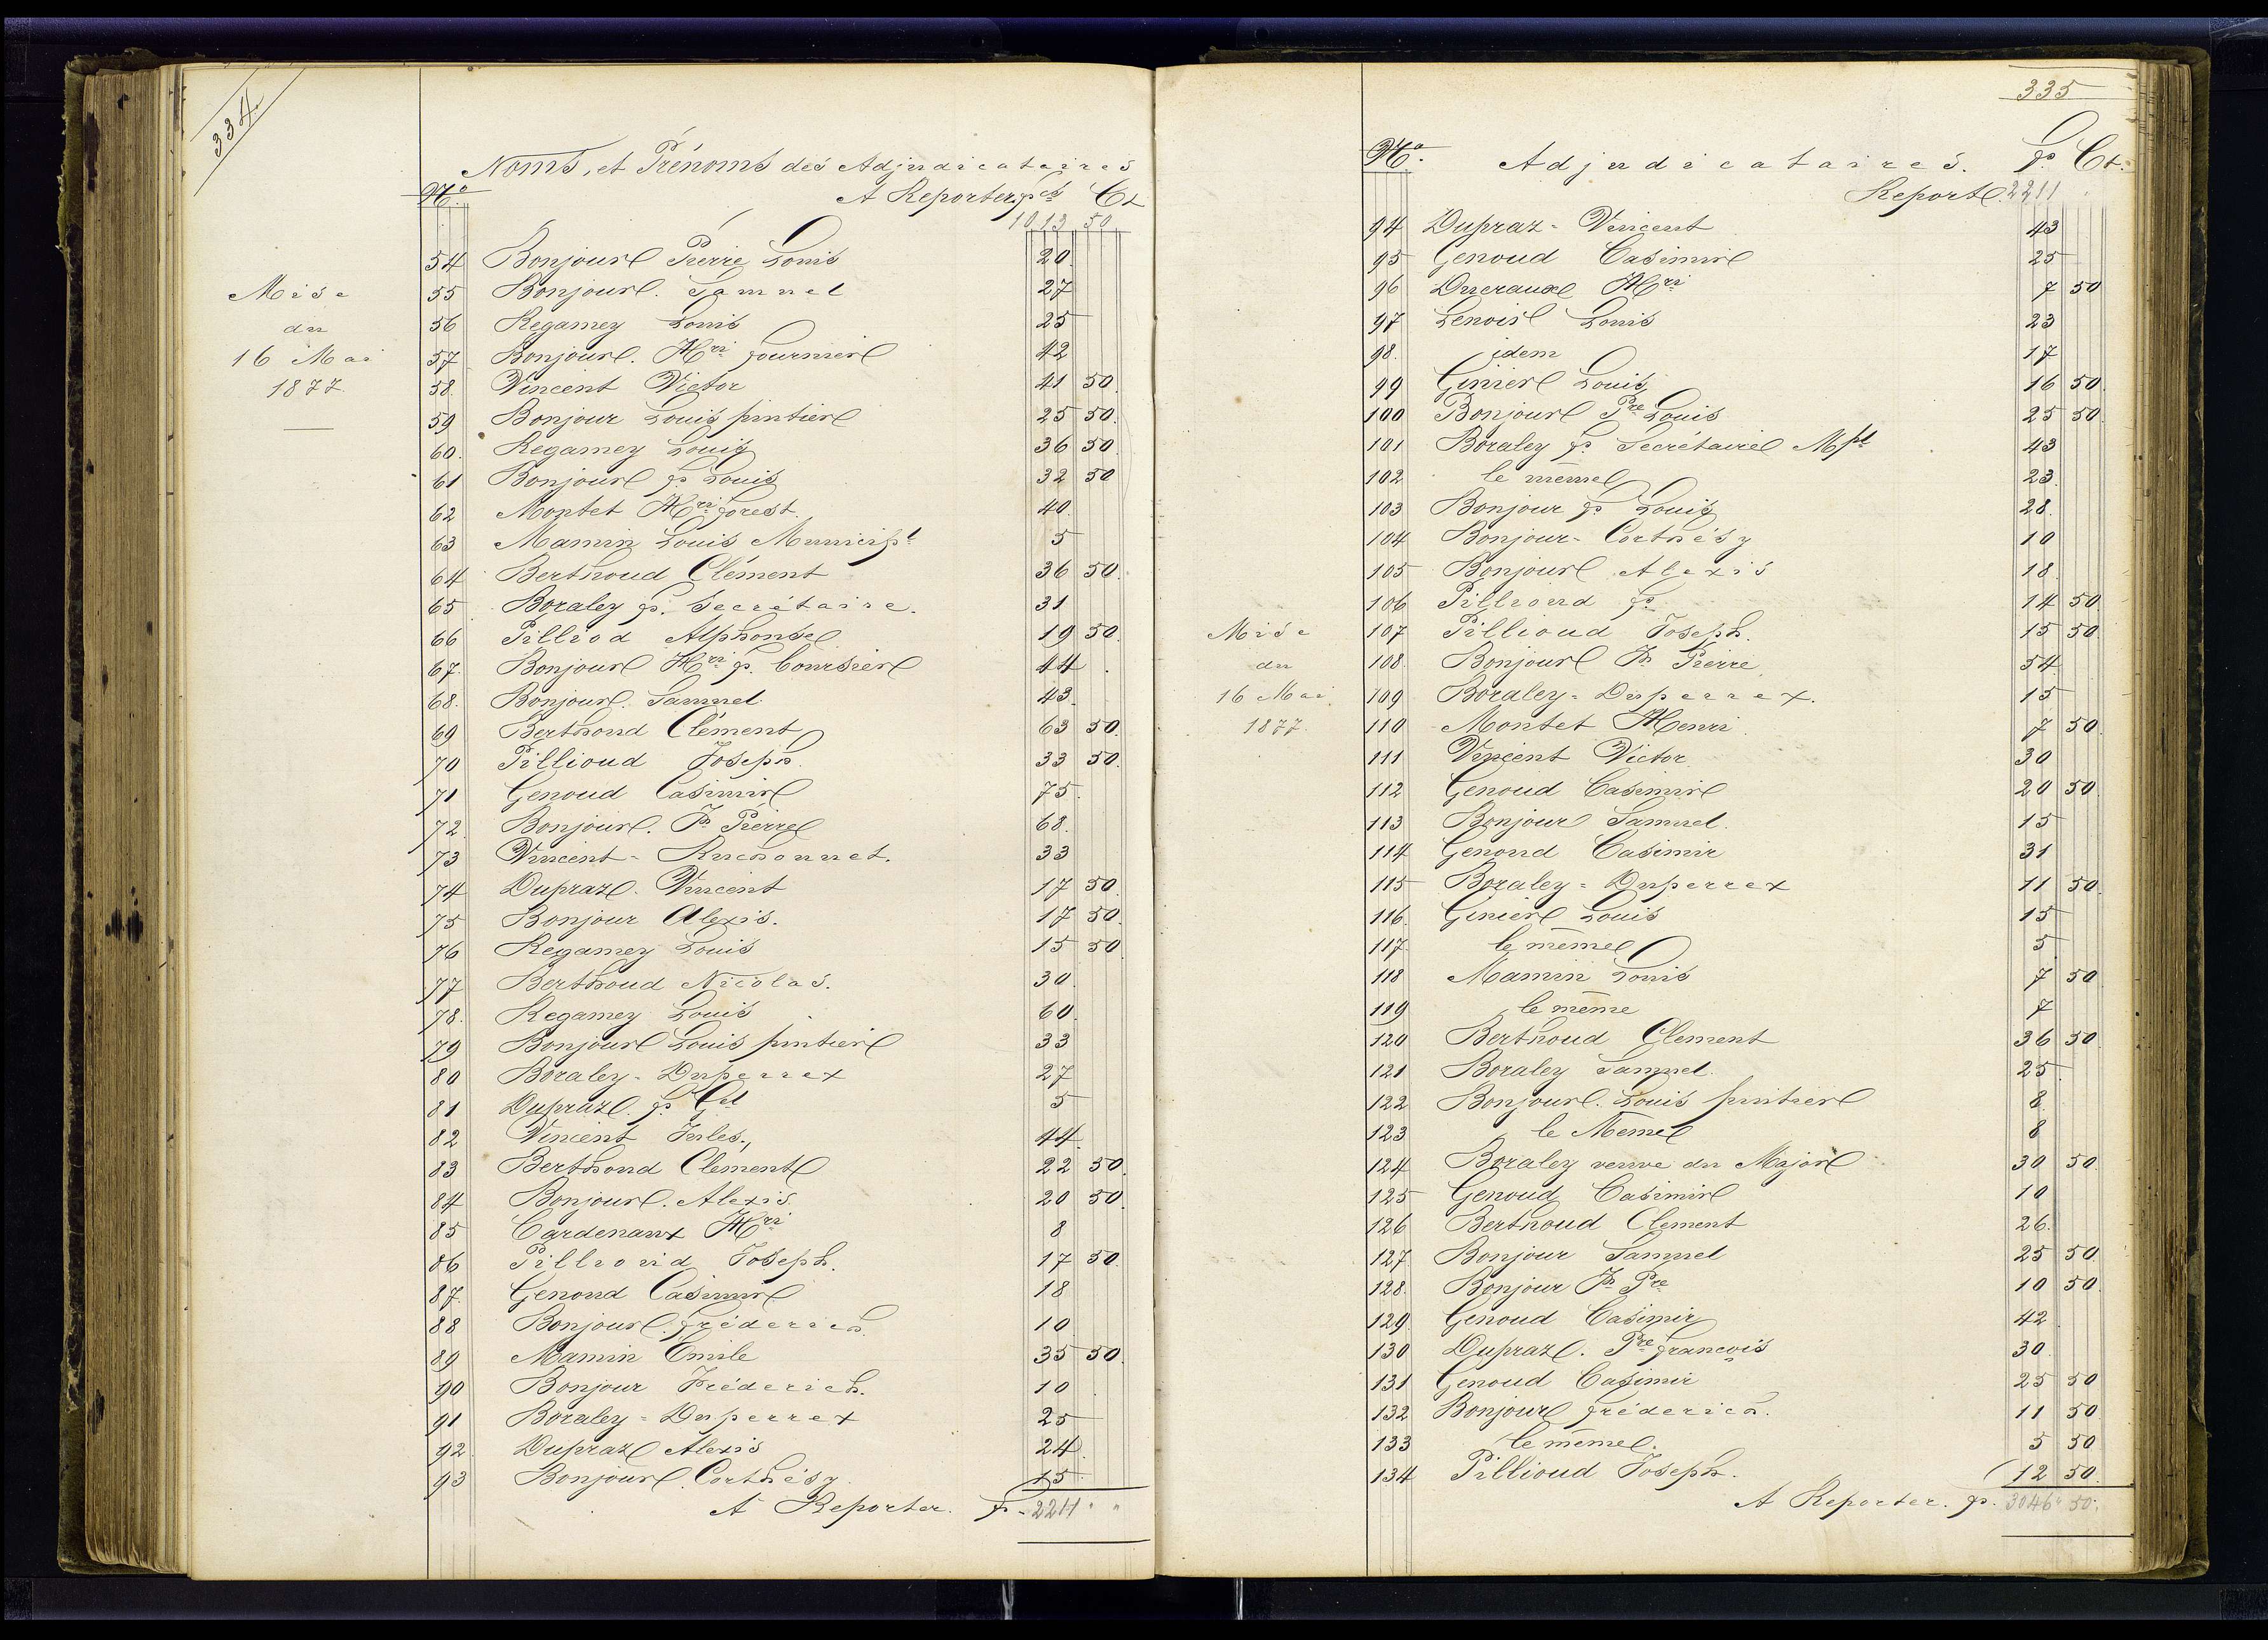 334.
Noms, et Prénoms des Adjudicataires
No. A Reporter. frcs Ct
1013 50
54 Bonjour Pierre Louis 20
Mise
55 Bonjour. Samuel 27
du
56 Regamey Louis 25
16 Mai
57 Bonjour. Hri fournier 42
1877.
58. Vincent Victor 41 50.
59 Bonjour Louis pintier 25 50.
60. Regamey Louis 36 50.
61 Bonjour fs Louis 32 50
62 Montet Hri forest. 40.
63 Mamin Louis Municipl 5
64 Berthoud Clément 36 50.
65 Boraley fs. Secrétaire. 31
66 Pilliod Alphonse 19 50
67. Bonjour Hri fs. Coursier 44.
68. Bonjour. Samuel. 43.
69 Berthoud Clément 63 50.
70 Pillioud Joseph. 33 50.
71 Genoud Casimir 75.
72. Bonjour. Jn Pierre 68.
73 Vincent - Ruchonnet. 33
74 Dupraz. Vincent 17 50.
75 Bonjour Alexis. 17 50.
76 Regamey Louis 15 50
77 Berthoud Nicolas. 30.
78. Regamey Louis 60.
79 Bonjour Louis pintier 33
80 Boraley - Duperrex 27
81 Dupraz. fs Gel 5
82 Vincent Jules., 44.
83 Berthoud Clément 22 50.
84 Bonjour. Alexis. 20 50.
85 Cardenaux Hri 8
86 Pillioud Joseph. 17 50.
87. Genoud Casimir 18
88 Bonjour. fréderich. 10
89 Mamin Emile 35 50.
90 Bonjour Fréderich. 10
91 Boraley = Duperrex 25
92. Dupraz Alexis 24.
93 Bonjour. Corthésy. 15.
A Reporter. fs. 2211 " "
335
No. Adjudicataires. fs Ct.
Report. 2211
94 Dupraz = Vincent 43
95 Genoud Casimir 25
96 Ducraux Hri 7 50
97 Lenoir Louis 23
98. idem 17
99 Ginier Louis 16 50.
100 Bonjour Pre Louis 25 50.
101 Boraley fs. Secrétaire Mpl 43
102 le même 23.
103 Bonjour fs Louis 28.
104 Bonjour - Corthésy 10
105 Bonjour Alexis 18.
106 Pillioud fs 14 50
Mise
107 Pillioud Joseph. 15 50
du
108. Bonjour Jn Pierre 54.
16 Mai
109 Boraley = Duperrex. 15
1877.
110 Montet Henri. 7 50.
111 Vincent Victor. 30
112 Genoud Casimir 20 50.
113 Bonjour Samuel. 15
114 Genoud Casimir 31
115 Boraley = Duperrex 11 50.
116. Ginier Louis 15
117. le même 5
118 Mamin Louis 7 50
119 le même 7
120 Berthoud Clement 36 50.
121 Boraley Samuel. 25.
122 Bonjour. Louis pintier 8.
123 le Meme 8
124 Boraley veuve du Major 30 50
125 Genoud Casimir 10
126 Berthoud Clement 26.
127 Bonjour Samuel 25 50.
128. Bonjour Jn Pre 10 50.
129. Genoud Casimir 42.
130 Dupraz. Pre françois 30.
131 Genoud Casimir 25 50
132 Bonjour fréderich. 11 50.
133 le même. 5 50
134 Pillioud Joseph. 12 50.
A Reporter. fs. 3046 " 50.